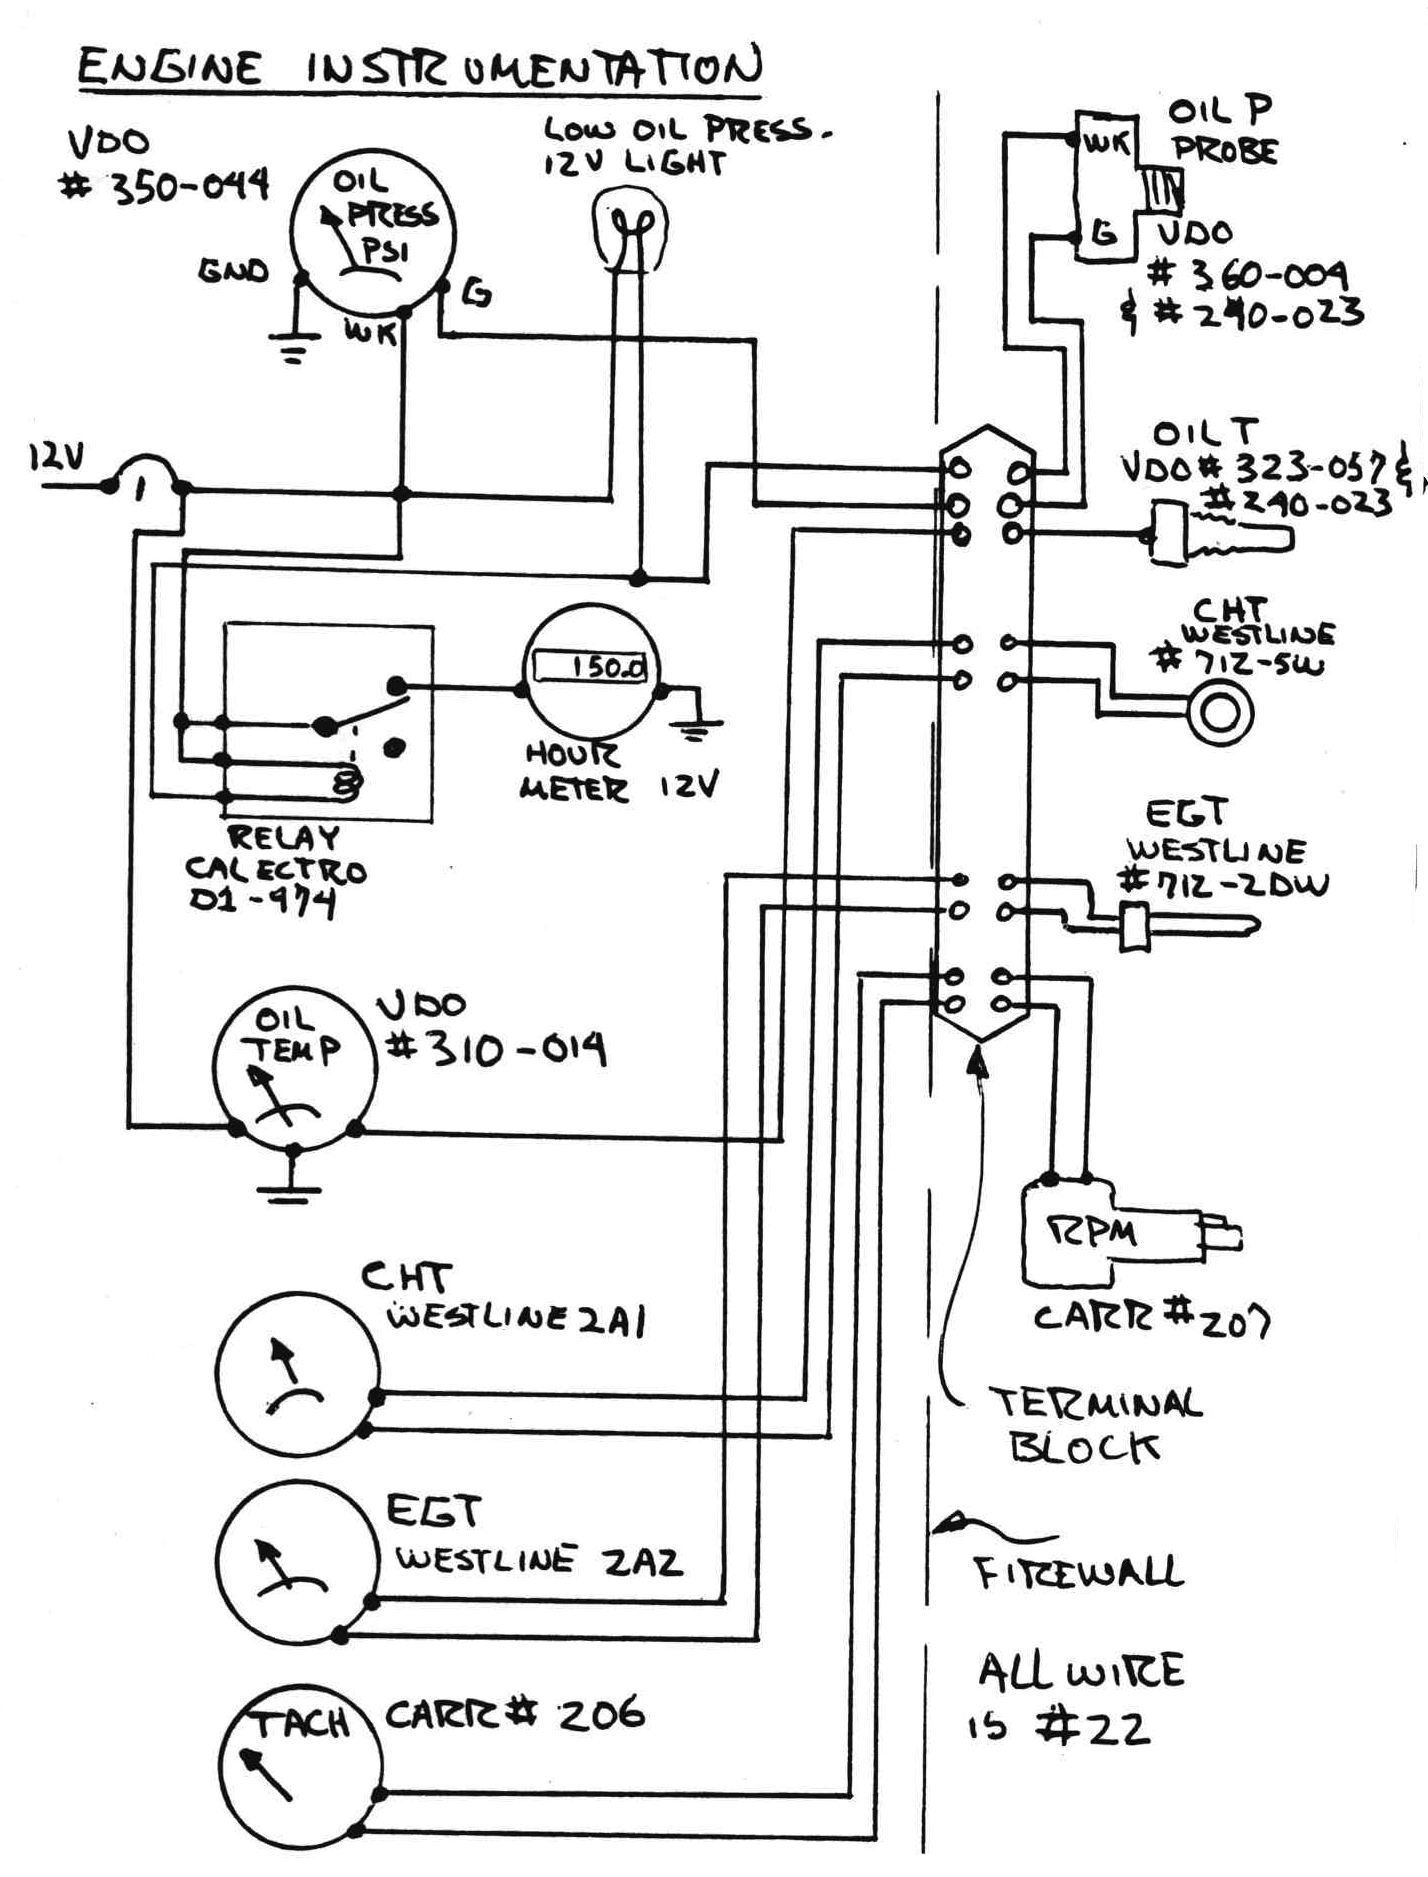 ENGINE INSTRUMENTATION
VDO
# 350-044
OIL
PRESS
PSI
GND
WK
G
LOW OIL PRESS.
12V LIGHT
OIL P
PROBE
WK
G
VDO
# 360-004
& # 240-023
12V
1
OIL T
VDO # 323-057 &
# 240-023
CHT
WESTLINE
# 712-5W
150.0
HOUR
METER 12V
RELAY
CALECTRO
D1-974
EGT
WESTLINE
# 712-2DW
OIL
TEMP
VDO
# 310-014
RPM
CARR # 207
CHT
WESTLINE 2A1
TERMINAL
BLOCK
EGT
WESTLINE 2A2
FIREWALL
TACH
CARR # 206
ALL WIRE
IS #22